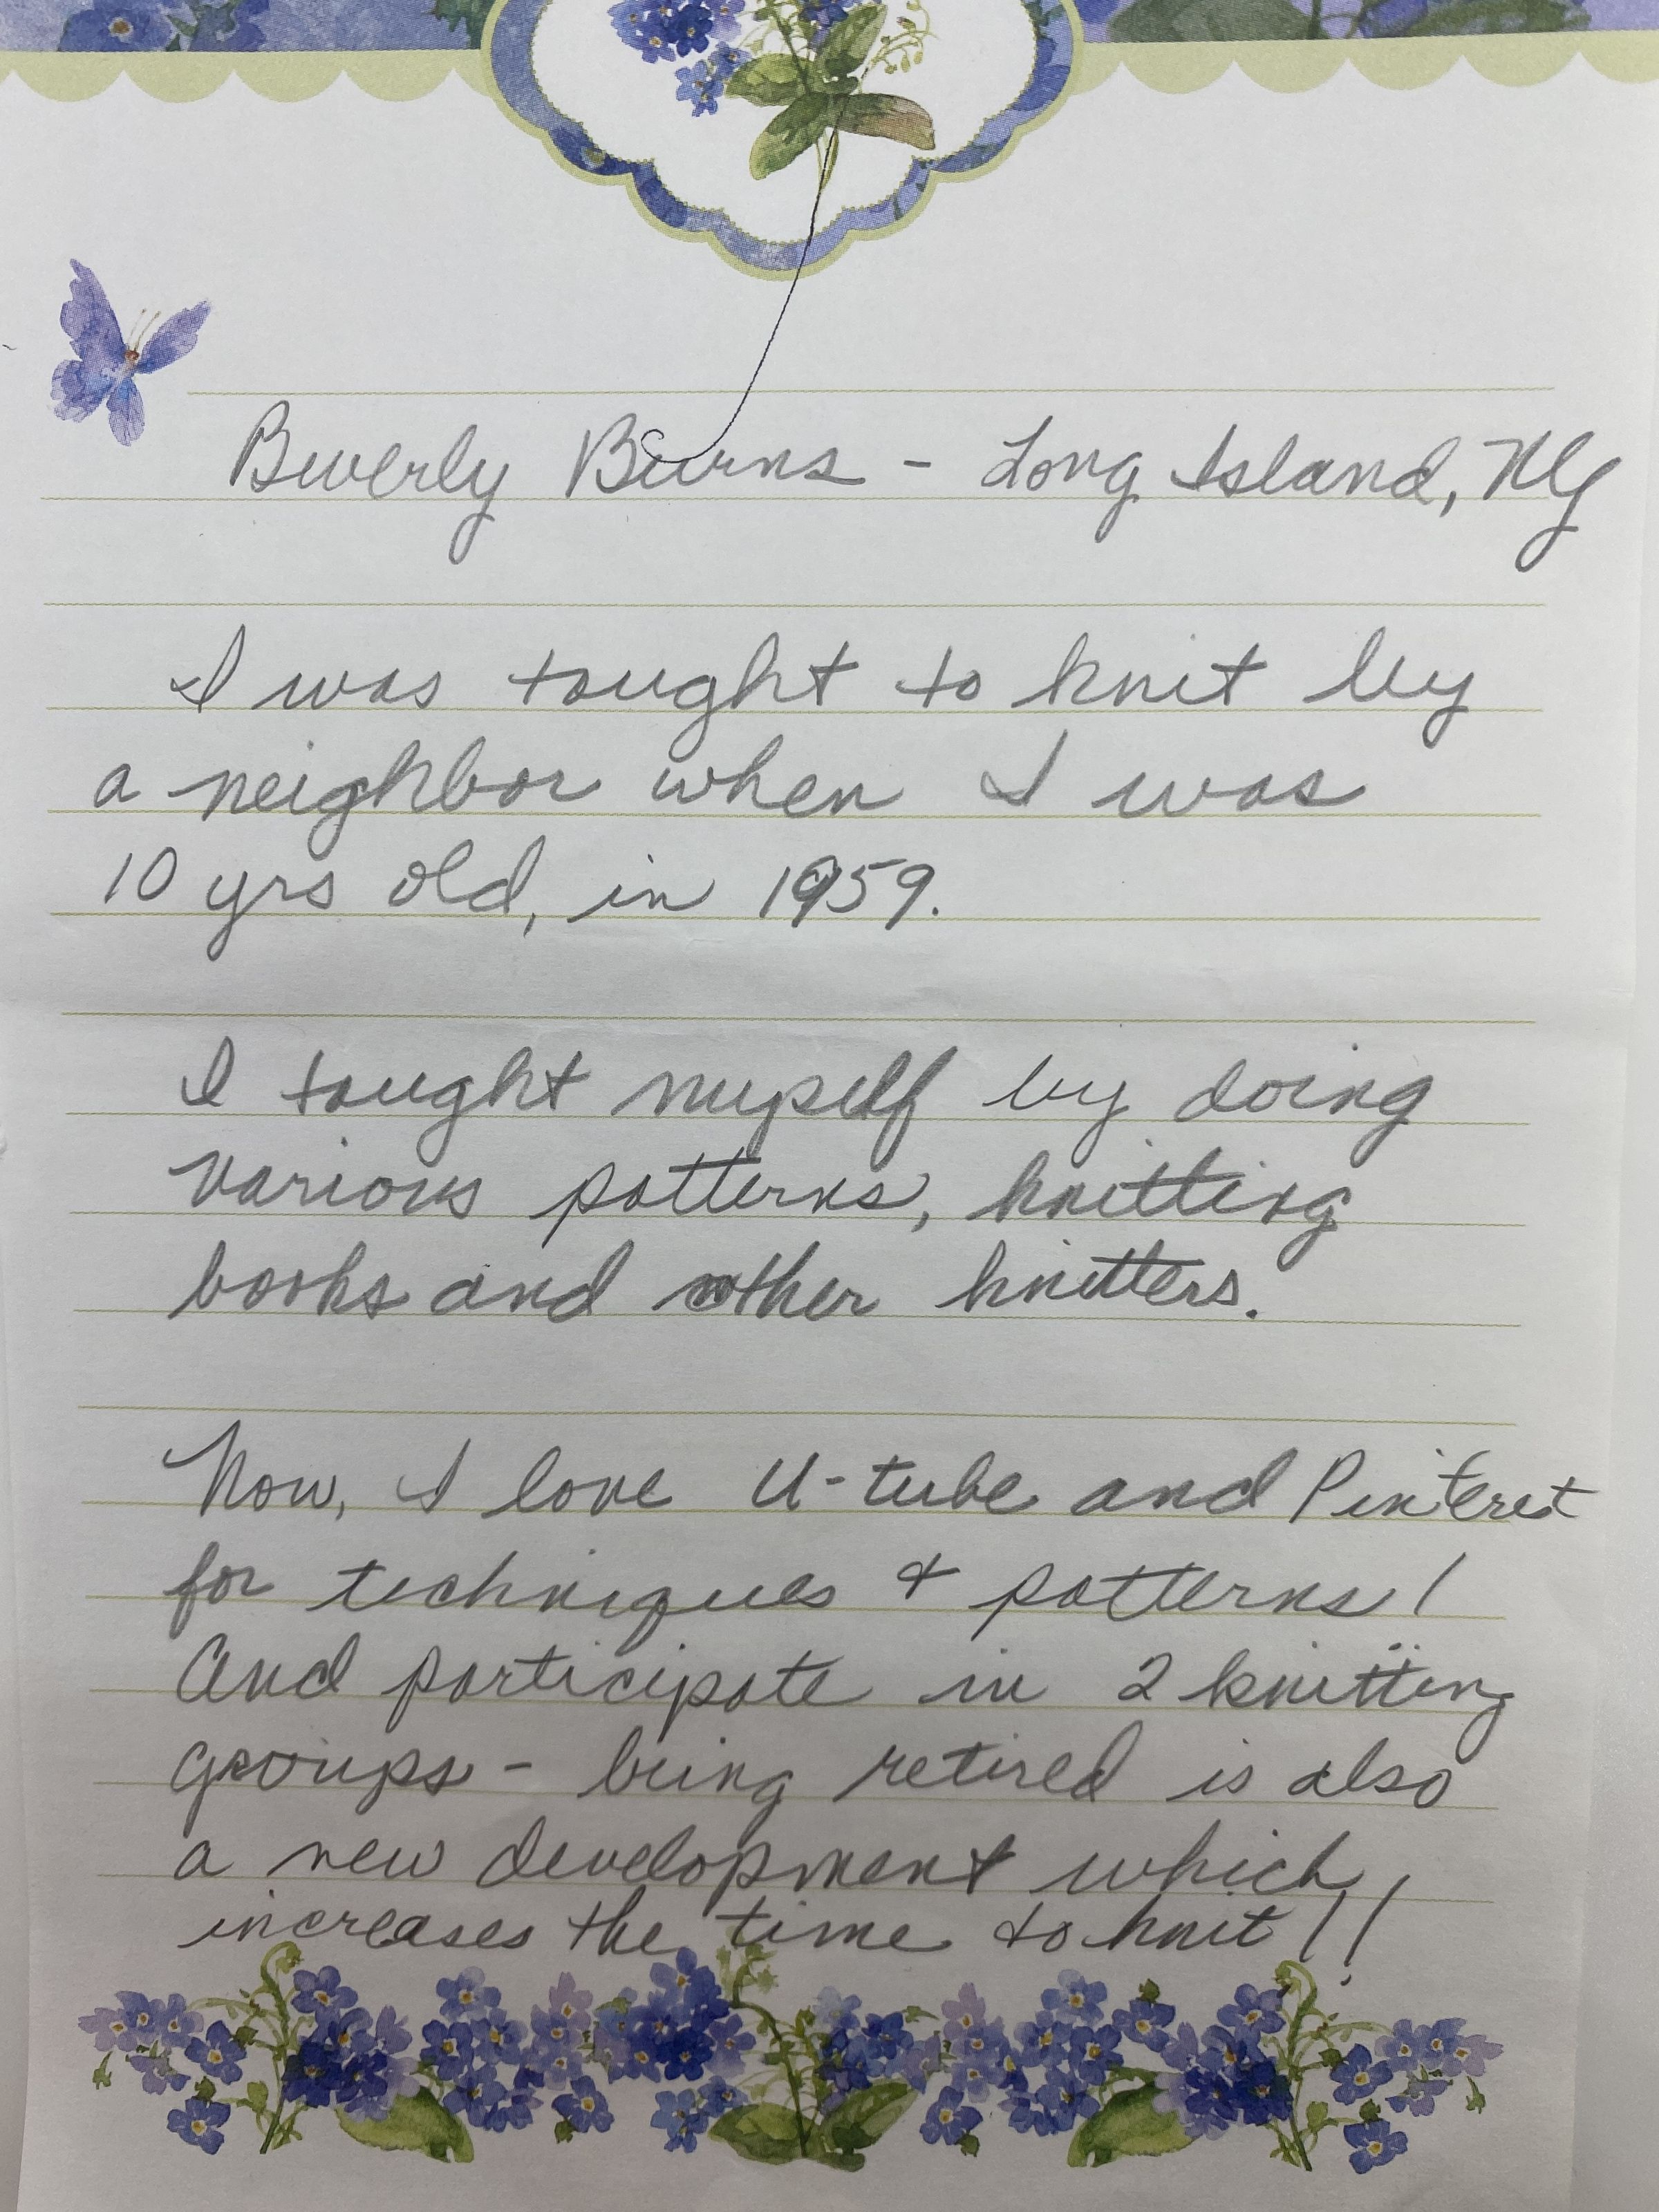 Beverly Burns - Long Island, NY
I was tought to knit by
a neighbor when I was
10 yrs old, in 1959.
I tought myself by doing
various patterns, knitting
books and other knitters.
Now, I love U-tube and Pinterest
for techniques & patterns!
And participate in 2 knitting
groups - being retired is also
a new development which
increases the time to knit!!